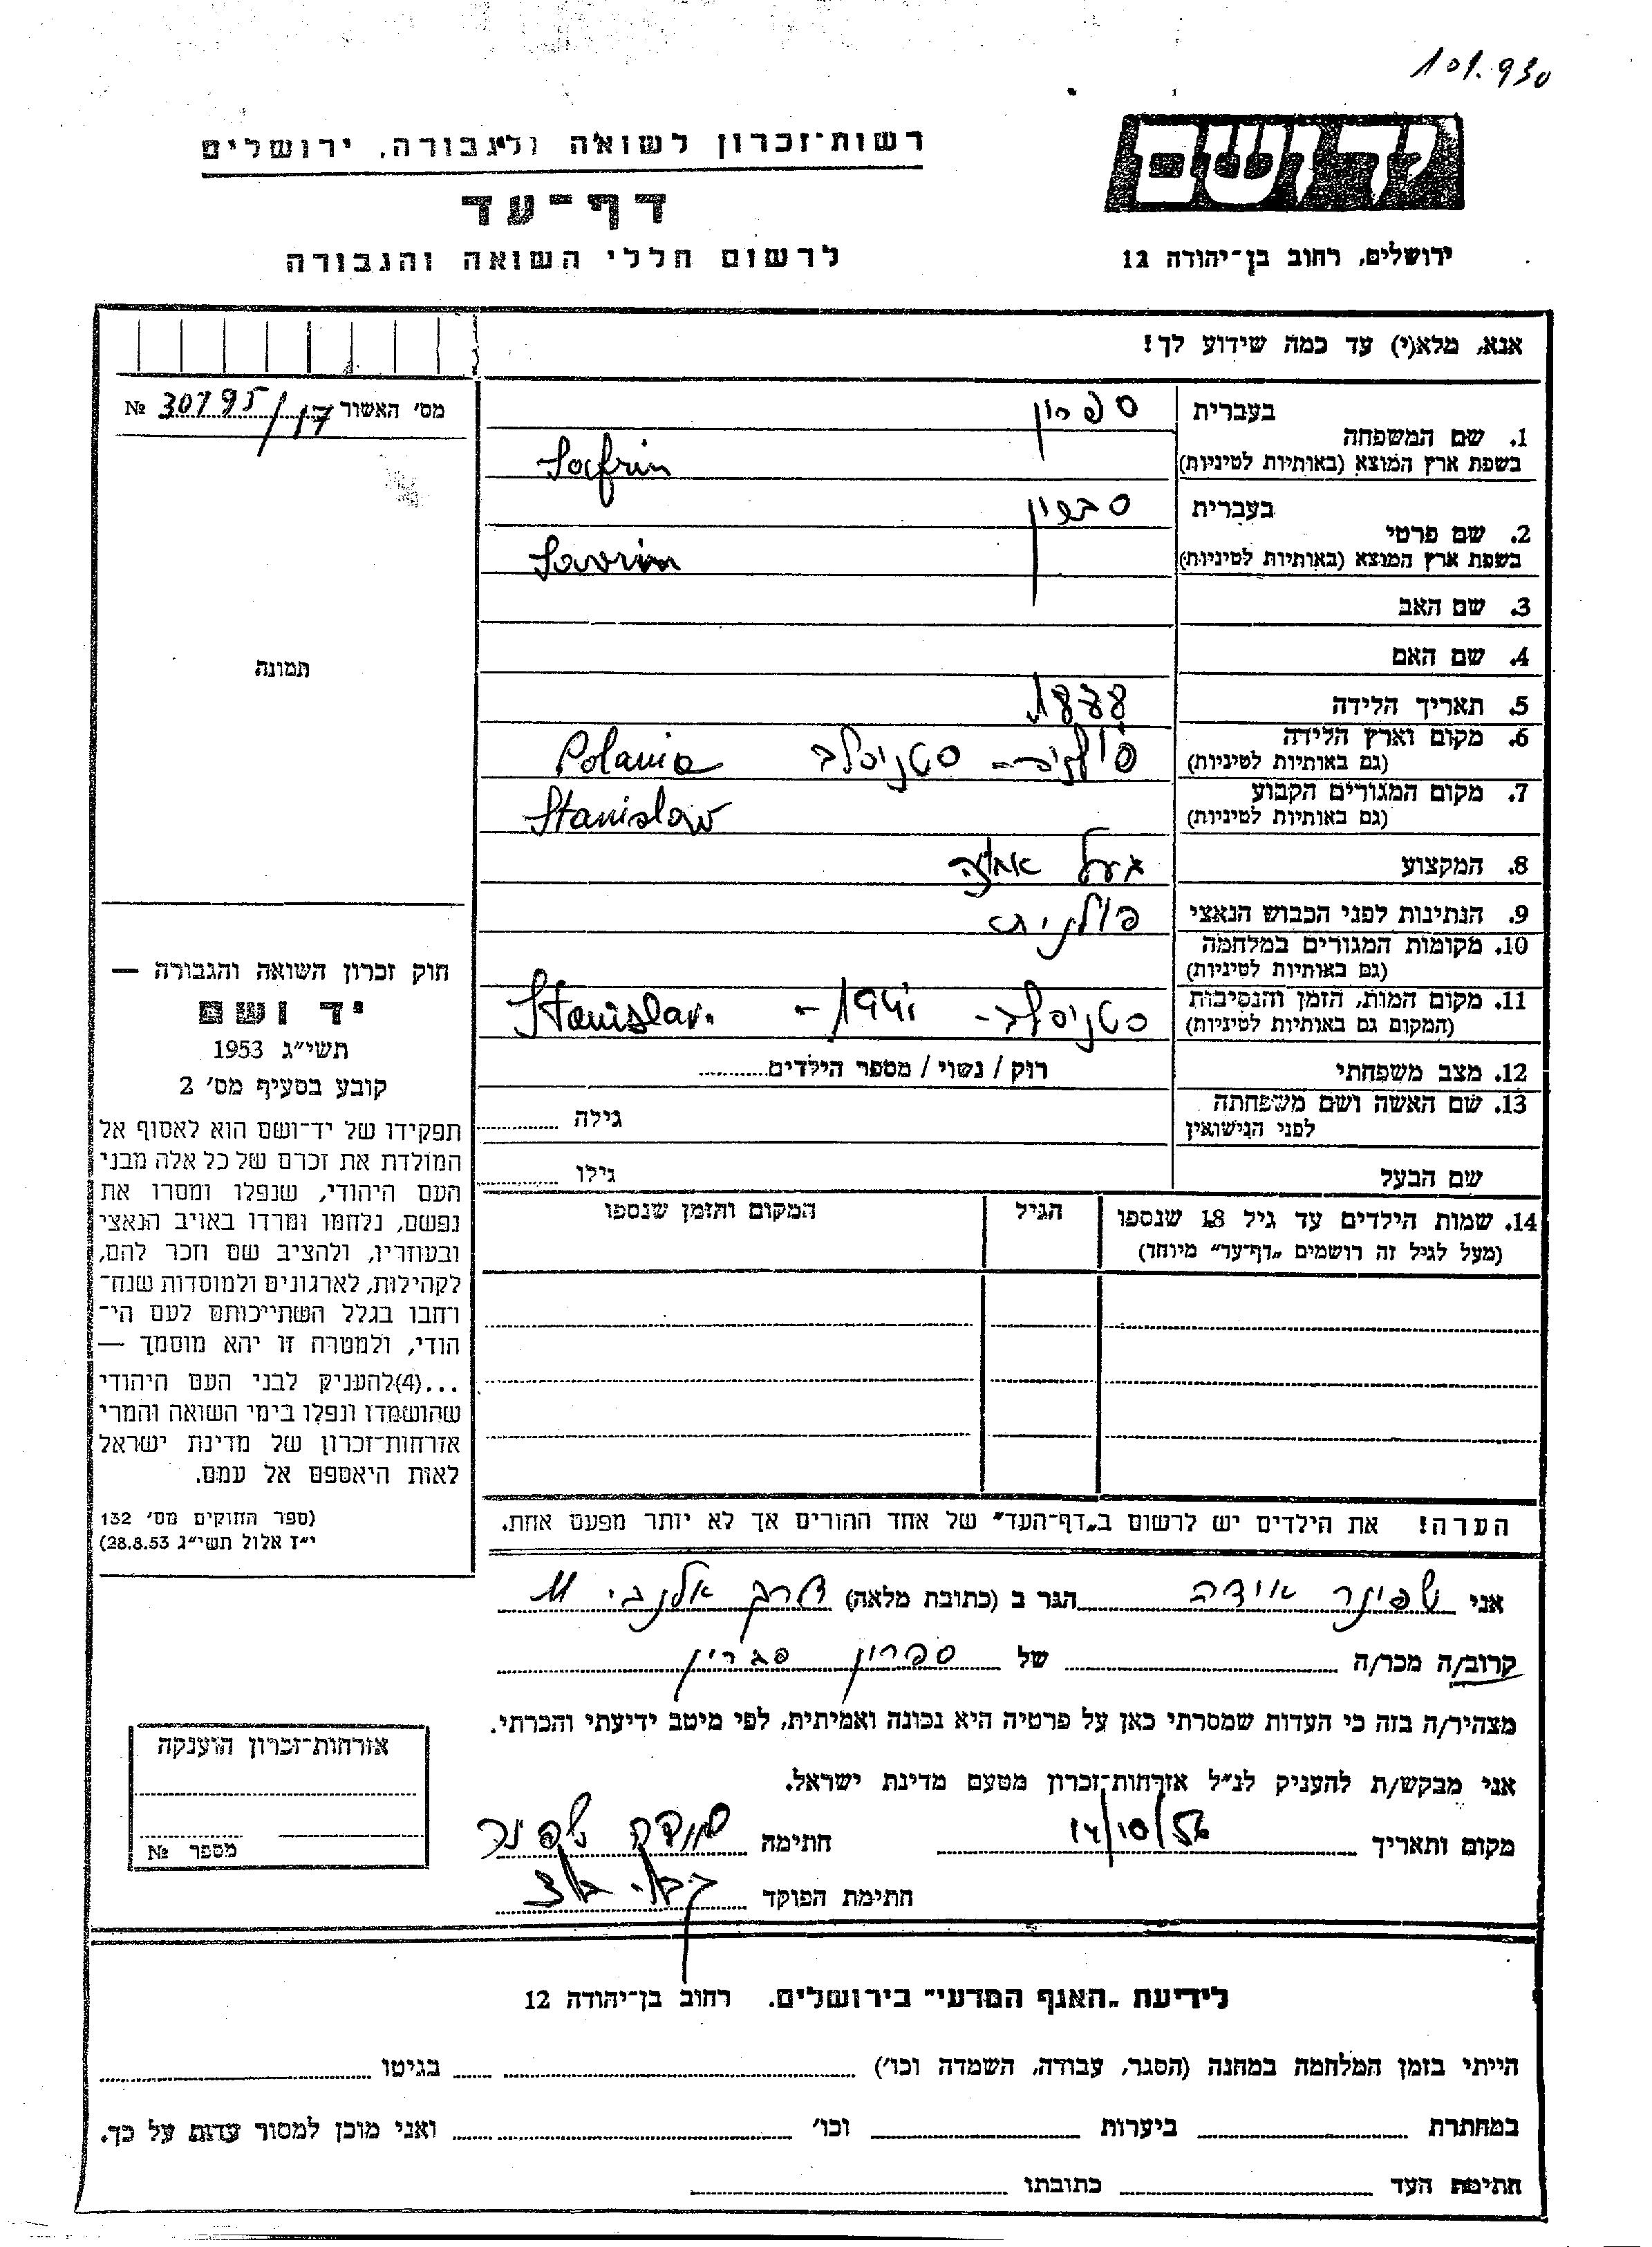 101.930
יד ושם
רשות־זכרון לשואה ולגבורה, ירושלים
דף־עד
לרשום חללי השואה והגבורה
ירושלים, רחוב בן־יהודה 12
אנא, מלא(י) עד כמה שידוע לך!
מס׳ האשור 30795/17 №
1. שם המשפחה
בעברית ספרון
בשפת ארץ המוצא (באותיות לטיניות) Safrin
2. שם פרטי
בעברית
בשפת ארץ המוצא (באותיות לטיניות) Savrin
3. שם האב
4. שם האם
5. תאריך הלידה 1878
6. מקום וארץ הלידה
(גם באותיות לטיניות) סטניסלב Polania
7. מקום המגורים הקבוע
(גם באותיות לטיניות) Stanislaw
8. המקצוע בעל
9. הנתינות לפני הכבוש הנאצי פולנית
10. מקומות המגורים במלחמה
(גם באותיות לטיניות)
11. מקום המות, הזמן והנסיבות
(המקום גם באותיות לטיניות) סטניסלב - 1941 - Stanislav.
12. מצב משפחתי רוק / נשוי / מספר הילדים
13. שם האשה ושם משפחתה
לפני הנישואין גילה
שם הבעל גילו
14. שמות הילדים עד גיל 18 שנספו
(מעל לגיל זה רושמים „דף־עד״ מיוחד)
הגיל
המקום והזמן שנספו
הערה! את הילדים יש לרשום ב„דף־העד״ של אחד ההורים אך לא יותר מפעם אחת.
תמונה
חוק זכרון השואה והגבורה —
יד ושם
תשי״ג 1953
קובע בסעיף מס׳ 2
תפקידו של יד־ושם הוא לאסוף אל
המולדת את זכרם של כל אלה מבני
העם היהודי, שנפלו ומסרו את
נפשם, נלחמו ומרדו באויב הנאצי
ובעוזריו, ולהציב שם וזכר להם,
לקהילות, לארגונים ולמוסדות שנח־
רחבו בגלל השתייכותם לעם הי־
הודי, ולמטרה זו יהא מוסמך —
...(4)להעניק לבני העם היהודי
שהושמדו ונפלו בימי השואה והמרי
אזרחות־זכרון של מדינת ישראל
לאות היאספם אל עמם.
(ספר החוקים מס׳ 132
י״ז אלול תשי״ג 28.8.53)
אני שפינר אידה הגר ב (כתובת מלאה) דרך אלנבי 11
קרוב/ה מכר/ה של ספרון סברין
מצהיר/ה בזה כי העדות שמסרתי כאן על פרטיה היא נכונה ואמיתית, לפי מיטב ידיעתי והכרתי.
אני מבקש/ת להעניק לנ״ל אזרחות־זכרון מטעם מדינת ישראל.
מקום ותאריך 14/10/56 חתימה שפינר
חתימת הפוקד
אזרחות־זכרון הוענקה
מספר №
לידיעת „האגף המדעי״ בירושלים. רחוב בן־יהודה 12
הייתי בזמן המלחמה במחנה (הסגר, עבודה, השמדה וכו׳) בגיטו
במחתרת ביערות וכו׳ ואני מוכן למסור עדות על כך.
חתימת העד כתובתו